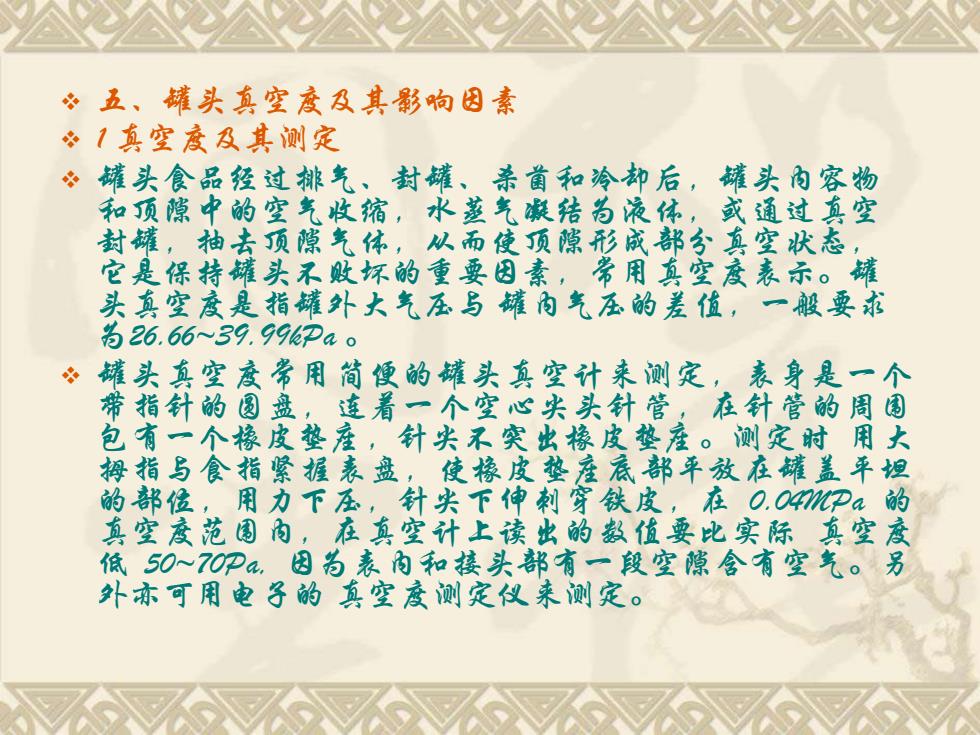 五、罐头真空度及其影响因素
1 真空度及其测定
罐头食品经过排气、封罐、杀菌和冷却后，罐头内容物
和顶隙中的空气收缩，水蒸气凝结为液体，或通过真空
封罐，抽去顶隙气体，从而使顶隙形成部分真空状态，
它是保持罐头不败坏的重要因素，常用真空度表示。罐
头真空度是指罐外大气压与 罐内气压的差值，一般要求
为26.66~39.99kPa。
罐头真空度常用简便的罐头真空计来测定，表身是一个
带指针的圆盘，连着一个空心尖头针管，在针管的周围
包有一个橡皮垫座，针尖不突出橡皮垫座。测定时 用大
拇指与食指紧握表盘，使橡皮垫座底部平放在罐盖平坦
的部位，用力下压，针尖下伸刺穿铁皮，在 0.04MPa 的
真空度范围内，在真空计上读出的数值要比实际 真空度
低 50~70Pa, 因为表内和接头部有一段空隙含有空气。另
外亦可用电子的 真空度测定仪来测定。